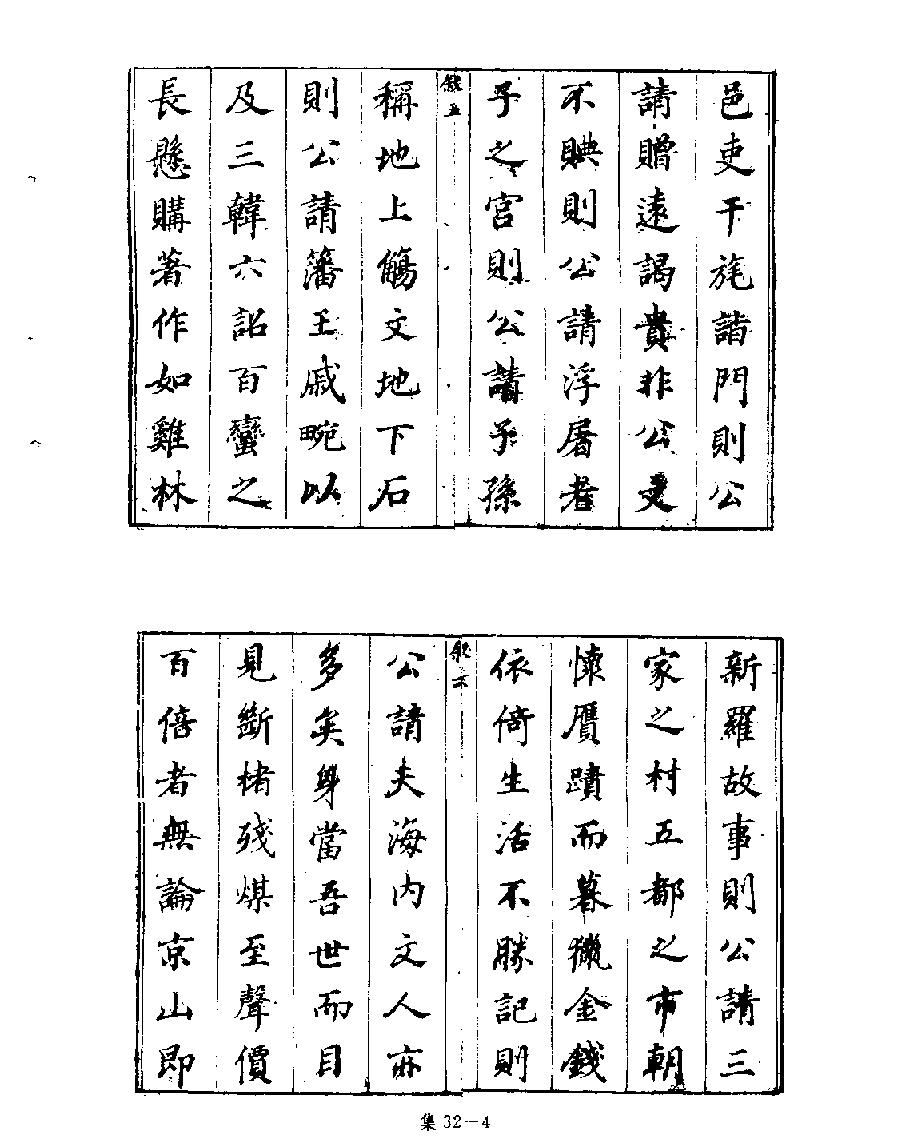 邑吏干旄詣門則公
請贈遠謁貴非公文
不腆則公請浮屠者
子之宮則公請子孫
敘五
稱地上觴文地下石
則公請籓王戚畹以
及三韓六詔百蠻之
長懸購著作如雞林
新羅故事則公請三
家之村五都之市朝
懷贗蹟而暮獵金錢
依倚生活不勝記則
敘六
公請夫海內文人亦
多矣身當吾世而目
見斷楮殘煤至聲價
百倍者無論京山即
集 32—4